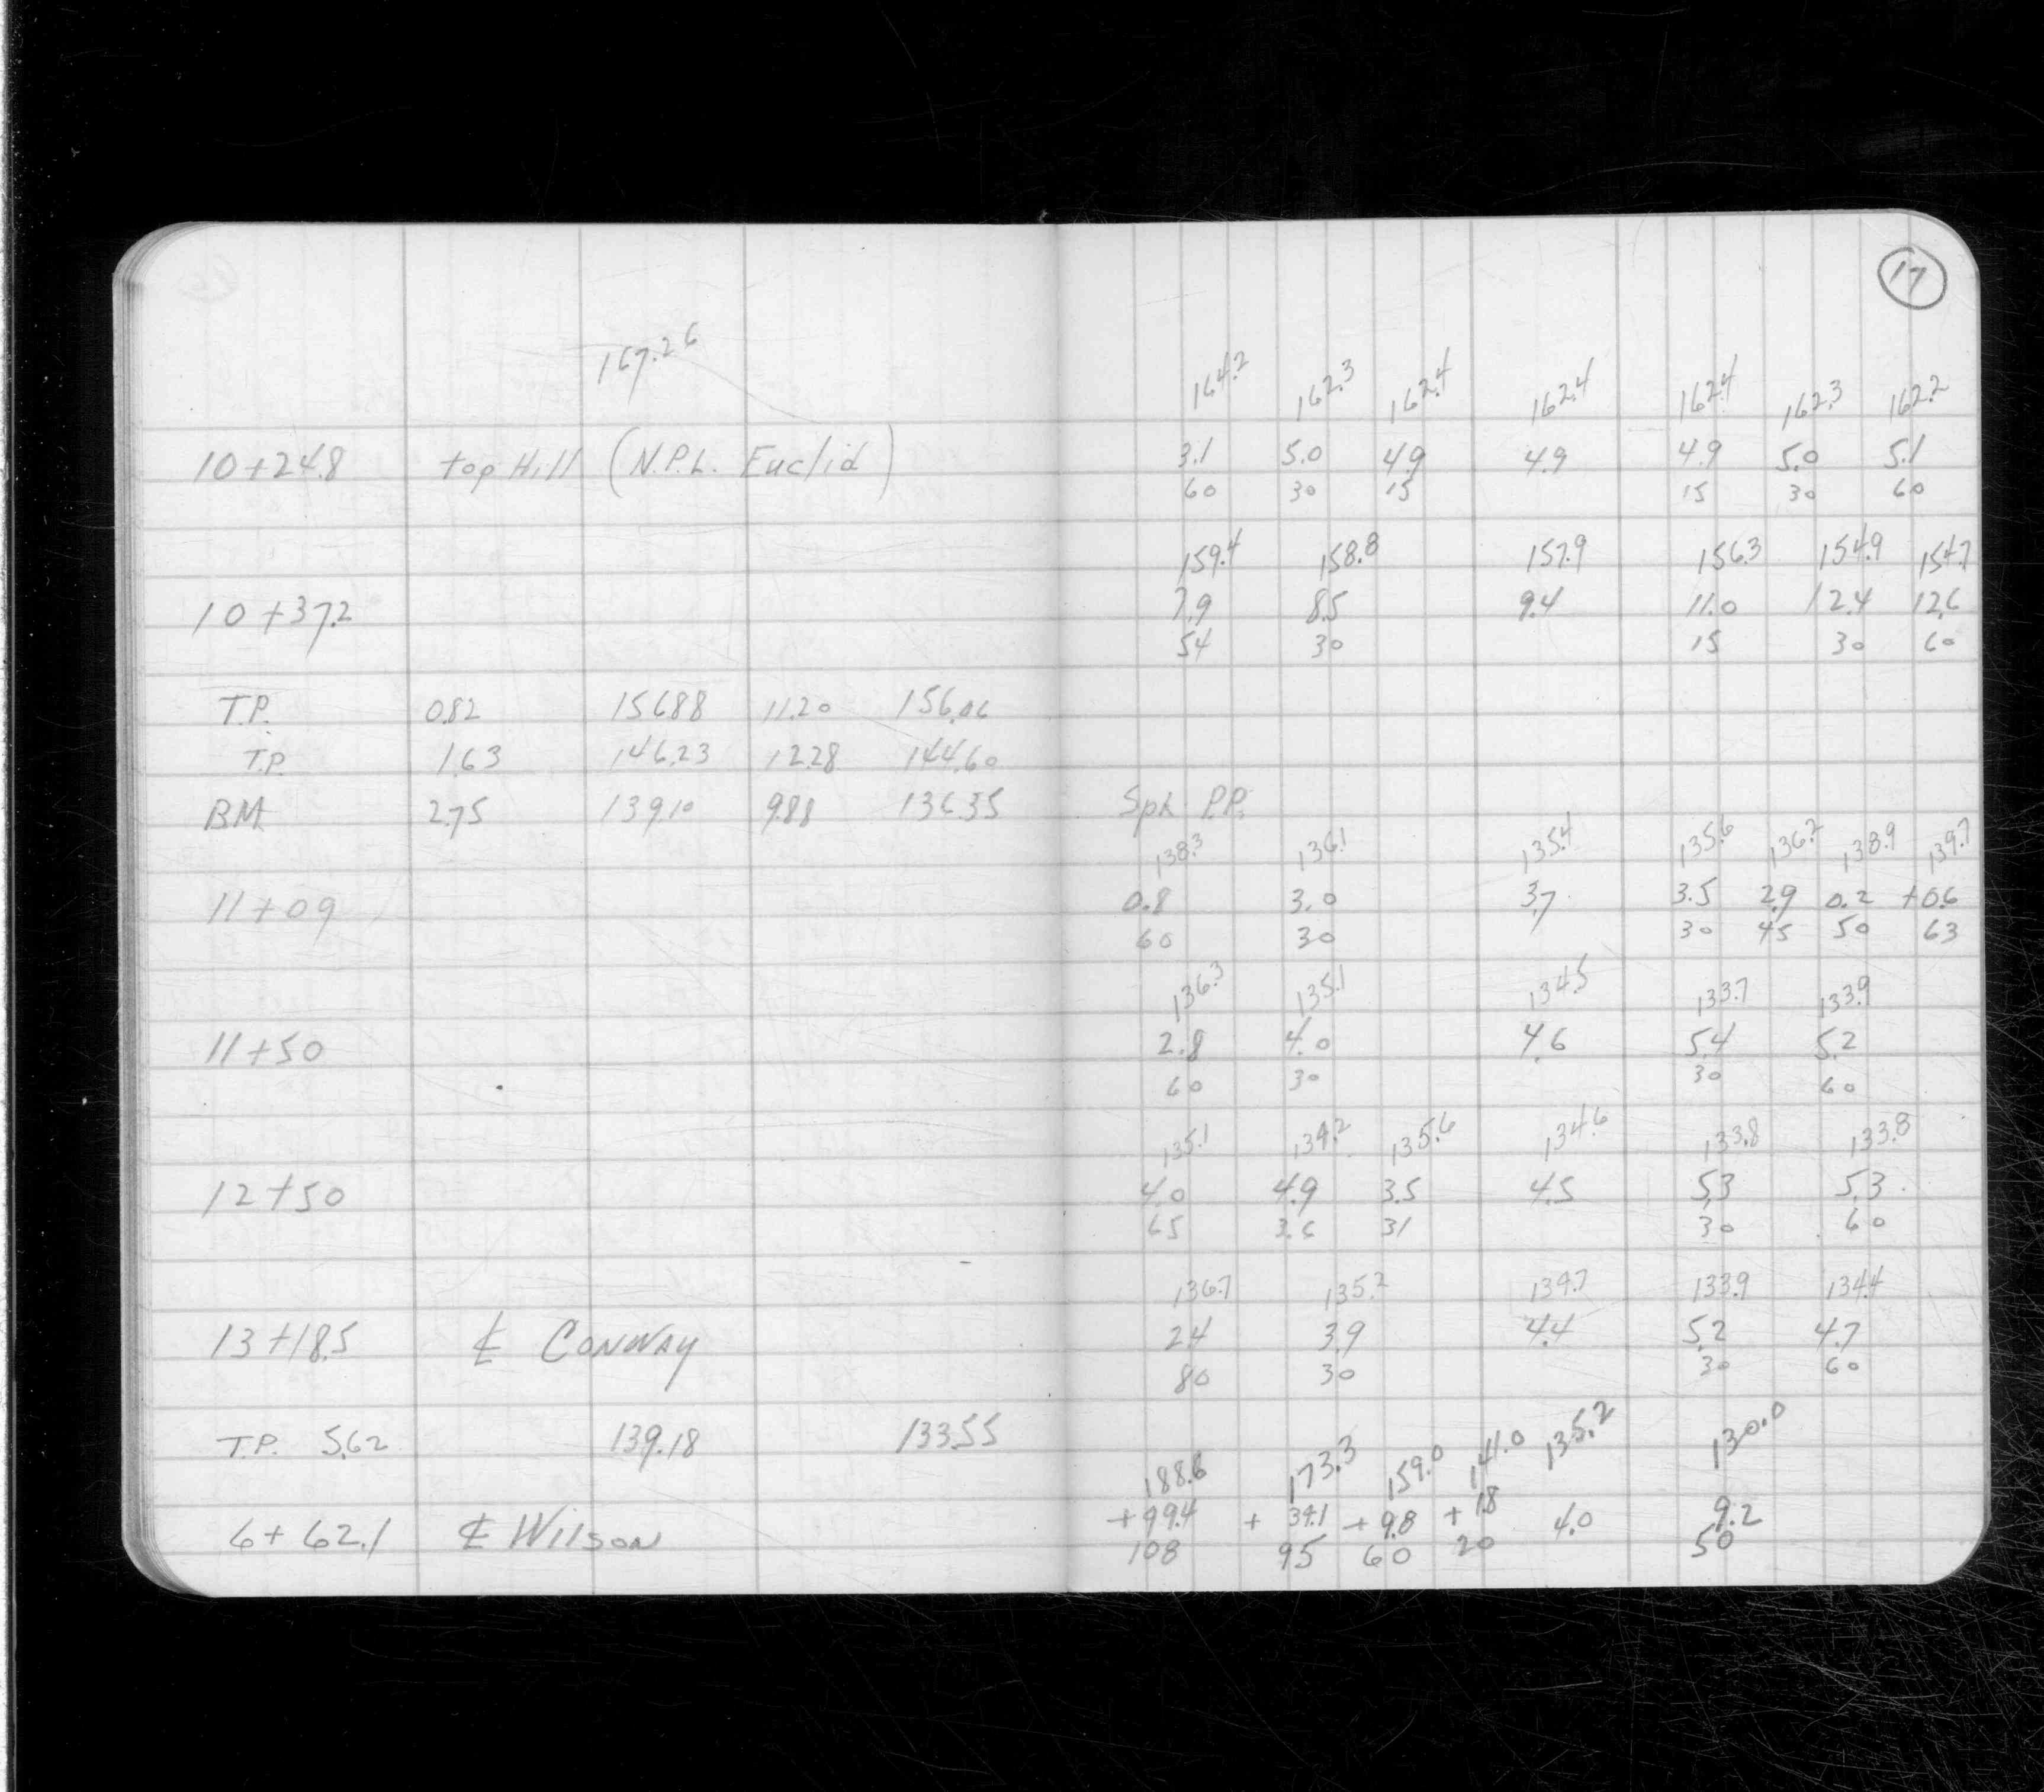 17
167.26 164.2 162.3 162.4 162.4 162.4 162.3 162.2
10+24.8 top Hill (N.P.L. Euclid) 3.1 5.0 4.9 4.9 4.9 5.0 5.1
60 30 15 15 30 60
159.4 158.8 157.9 156.3 154.9 154.7
10+37.2 7.9 8.5 9.4 11.0 12.4 12.6
54 30 15 30 60
T.P. 0.82 156.88 11.20 156.06
T.P. 1.63 146.23 12.28 144.60
BM 2.75 139.10 9.88 136.35 Spk P.P.
138.3 136.1 135.4 135.6 136.2 138.9 139.7
11+09 0.8 3.0 3.7 3.5 2.9 0.2 +0.6
60 30 30 45 50 63
136.3 135.1 134.5 133.7 133.9
11+50 2.8 4.0 4.6 5.4 5.2
60 30 30 60
135.1 134.2 135.6 134.6 133.8 133.8
12+50 4.0 4.9 3.5 4.5 5.3 5.3
65 36 31 30 60
136.7 135.2 134.7 133.9 134.4
13+18.5 ℄ CONWAY 2.4 3.9 4.4 5.2 4.7
80 30 30 60
T.P. 5.62 139.18 133.55
188.6 173.3 159.0 141.0 135.2 130.0
6+62.1 ℄ Wilson +99.4 +34.1 +9.8 +1.8 4.0 9.2
108 95 60 20 50